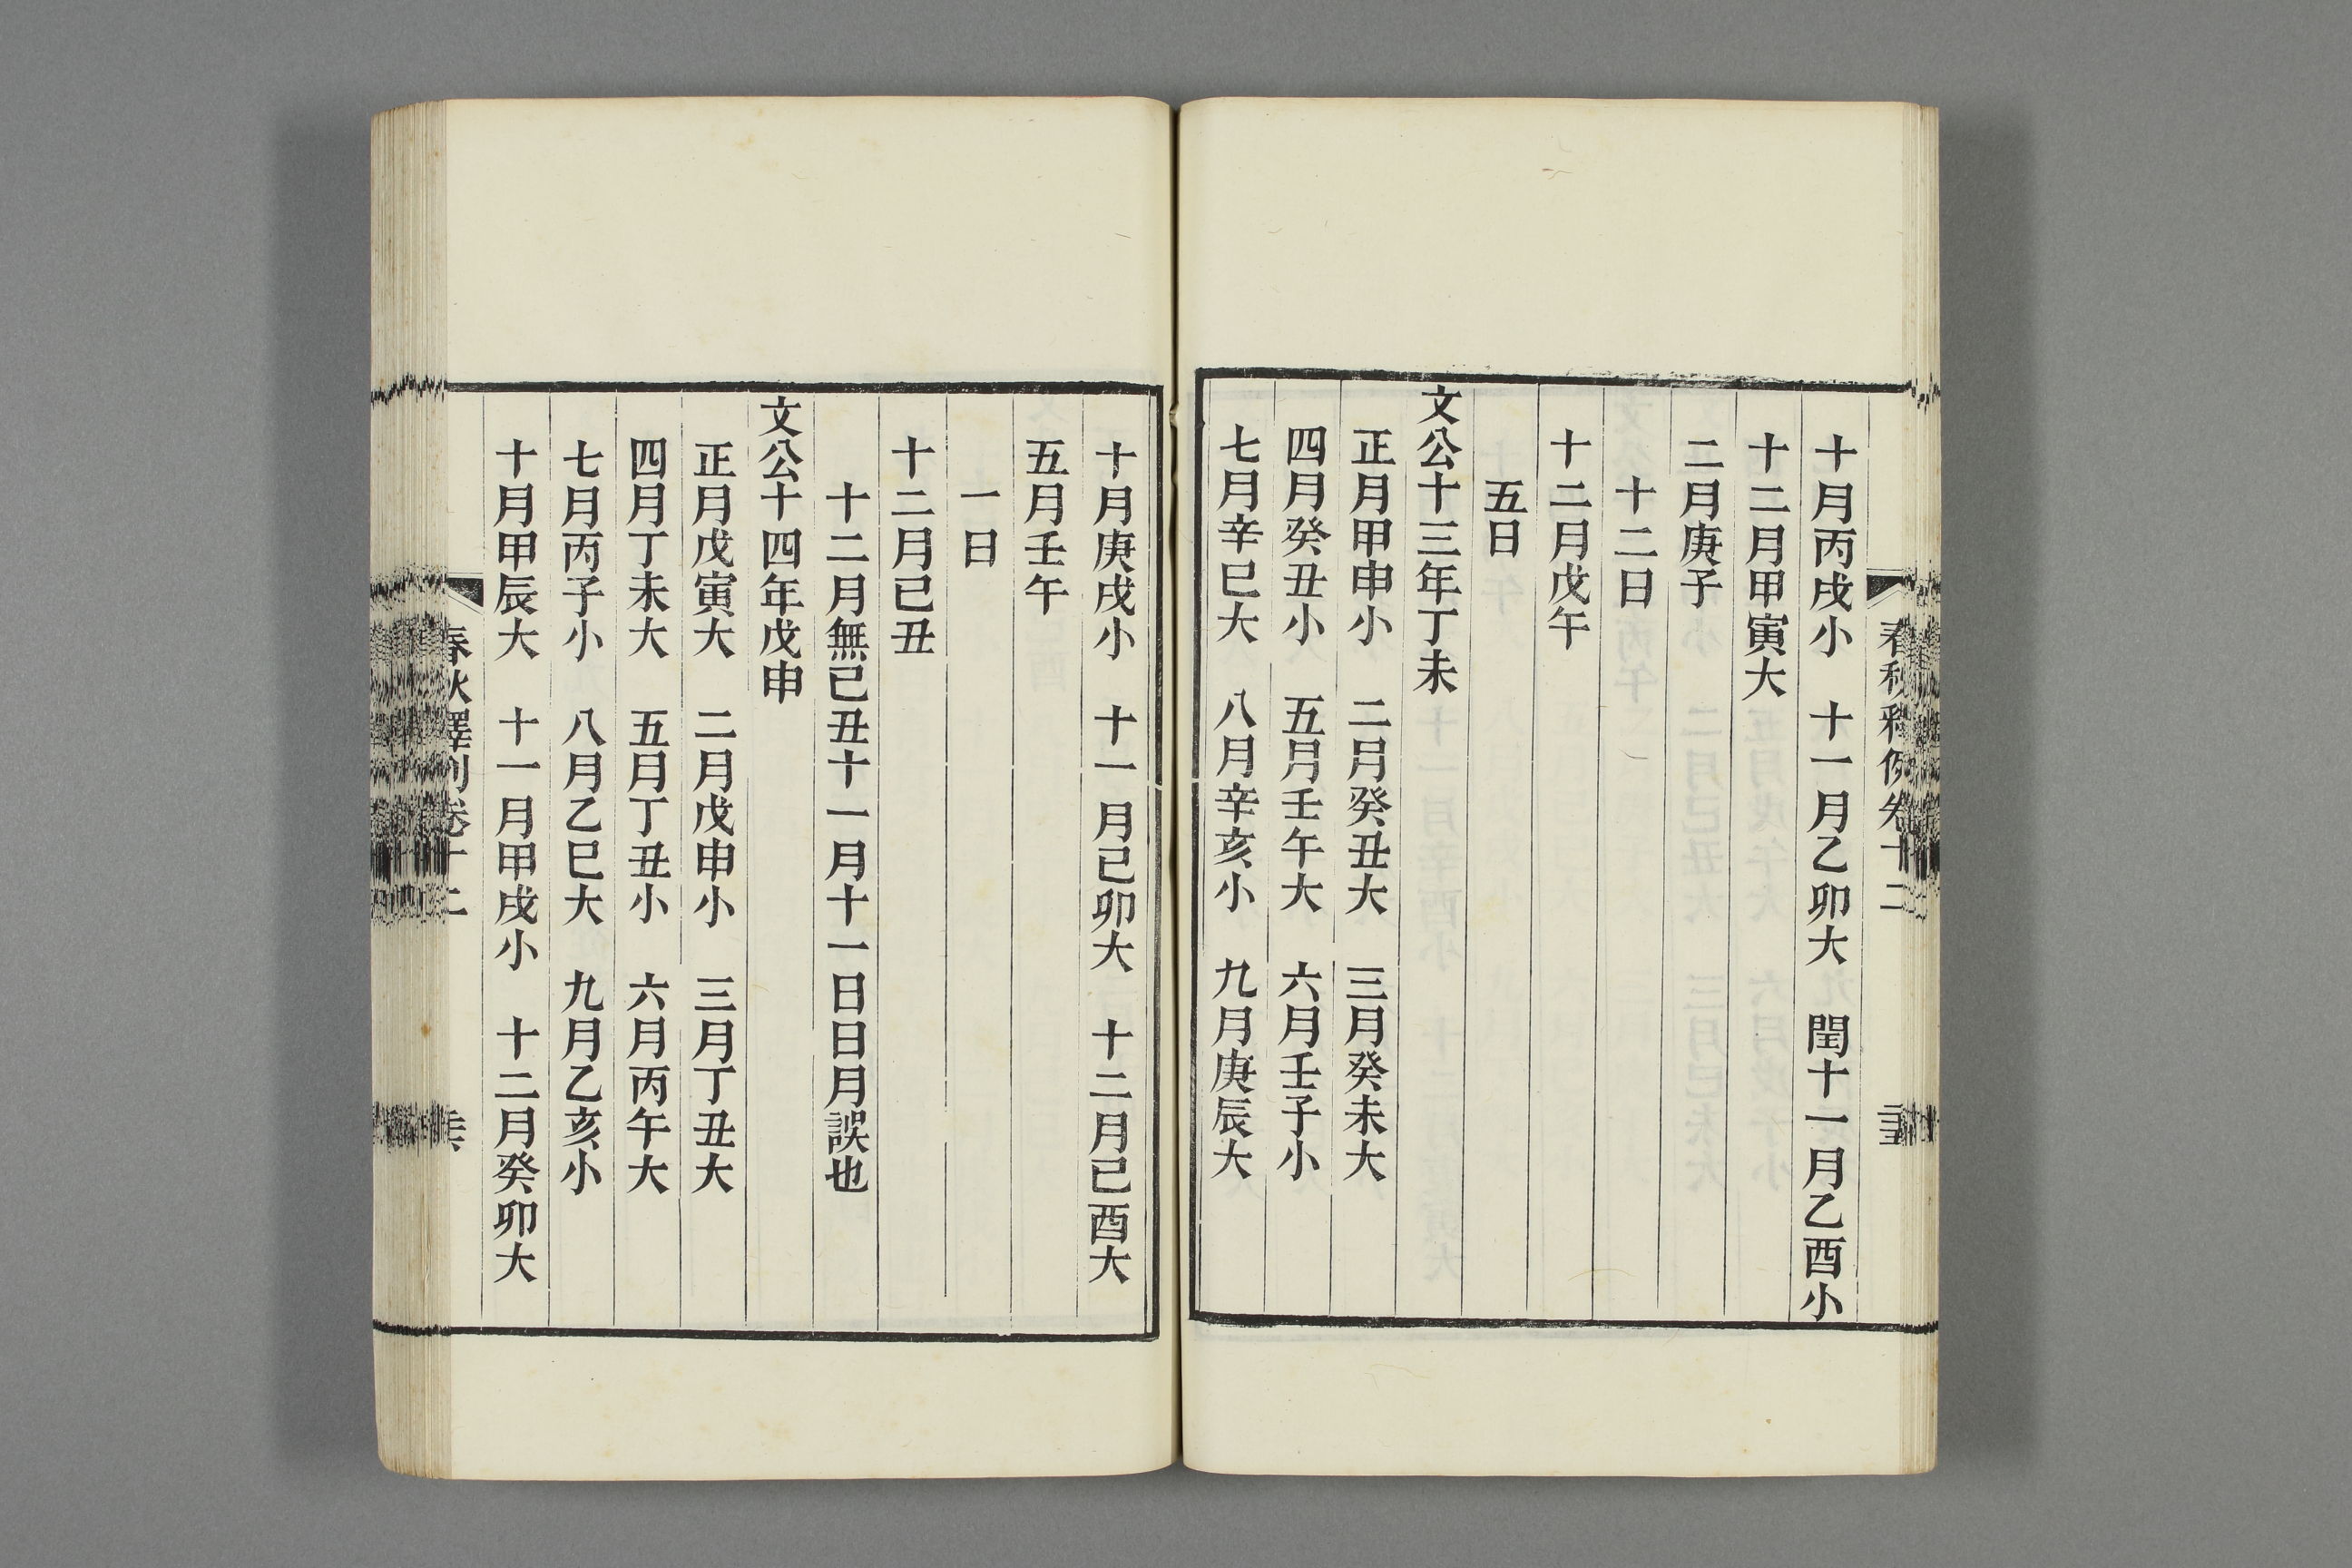 十月丙戌小　十一月乙卯大　閏十一月乙酉小
十二月甲寅大
二月庚子
十二日
十二月戊午
五日
文公十三年丁未
正月甲申小　二月癸丑大　三月癸未大
四月癸丑小　五月壬午大　六月壬子小
七月辛巳大　八月辛亥小　九月庚辰大
十月庚戌小　十一月己卯大　十二月己酉大
五月壬午
一日
十二月己丑
十二月無己丑十一月十一日日月誤也
文公十四年戊申
正月戊寅大　二月戊申小　三月丁丑大
四月丁未大　五月丁丑小　六月丙午大
七月丙子小　八月乙巳大　九月乙亥小
十月甲辰大　十一月甲戌小　十二月癸卯大
春秋釋例卷十二